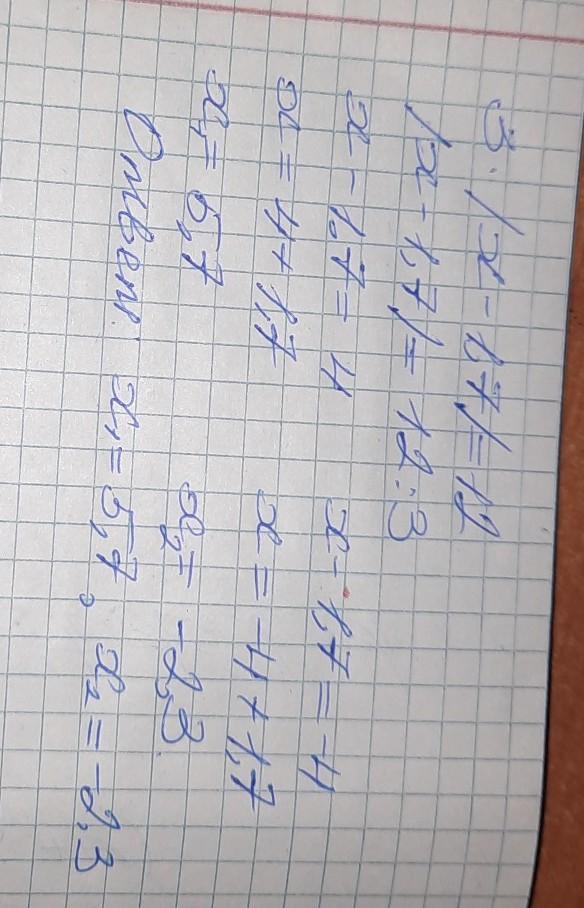 3·|x-1,7|=12
|x-1,7|=12:3
x-1,7=4 x-1,7=-4
x=4+1,7 x=-4+1,7
x₁=5,7 x₂=-2,3
Ответ: x₁=5,7, x₂=-2,3